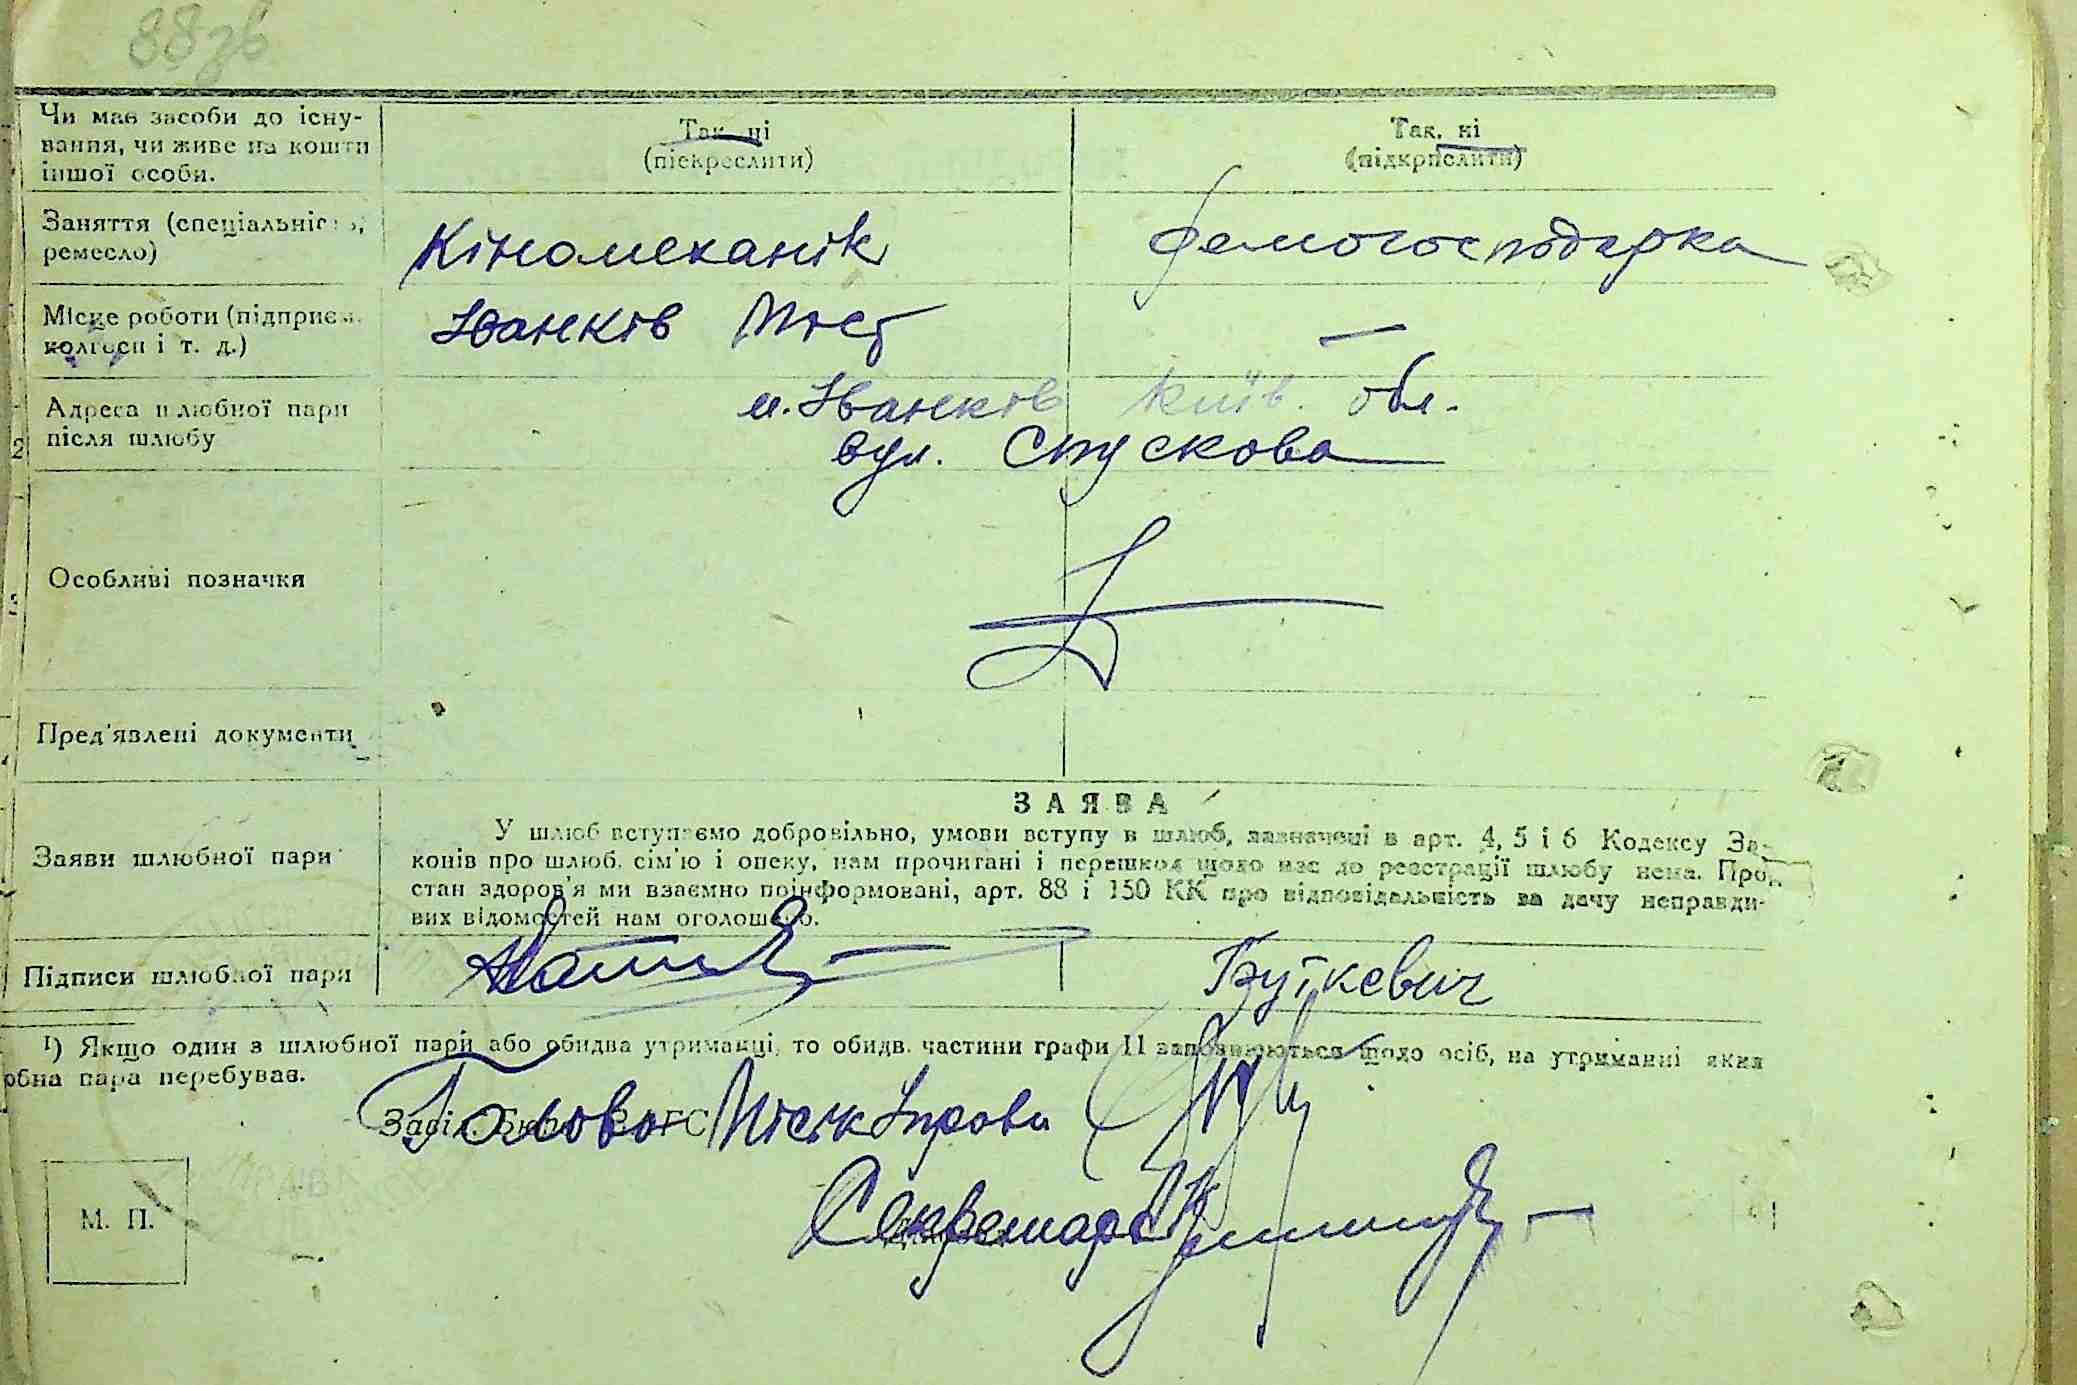 88зв
Чи має засоби до існу-
вання, чи живе на кошти
іншої особи.
Так, ні
(піскреслити)
Так, ні
(підкрпслити)
Заняття (спеціальніс
ремесло)
Кіномеханік
домогосподарка
Місце роботи (підприєм.
колгосп і т. д.)
Іванків Міст
—
Адреса шлюбної пари
після шлюбу
м. Іванків Київ. обл.
вул. Спускова
Особливі позначки
Пред'явлені документи
Заяви шлюбної пари
ЗАЯВА
У шлюб вступаємо добровільно, умови вступу в шлюб, зазначені в арт. 4, 5 і 6 Кодексу За-
конів про шлюб, сім'ю і опеку, нам прочитані і перешкод щодо нас до реєстрації шлюбу нема. Про
стан здоров'я ми взаємно поінформовані, арт. 88 і 150 КК про відповідальність за дачу неправди-
вих відомостей нам оголошено.
Підписи шлюбної пари
Буткевич
1) Якщо один з шлюбної пари або обидва утриманці, то обидв. частини графи 11 заповнюються щодо осіб, на утриманні яких
обна пара перебуває.
Голова МіськУправи
Секретар
М. П.